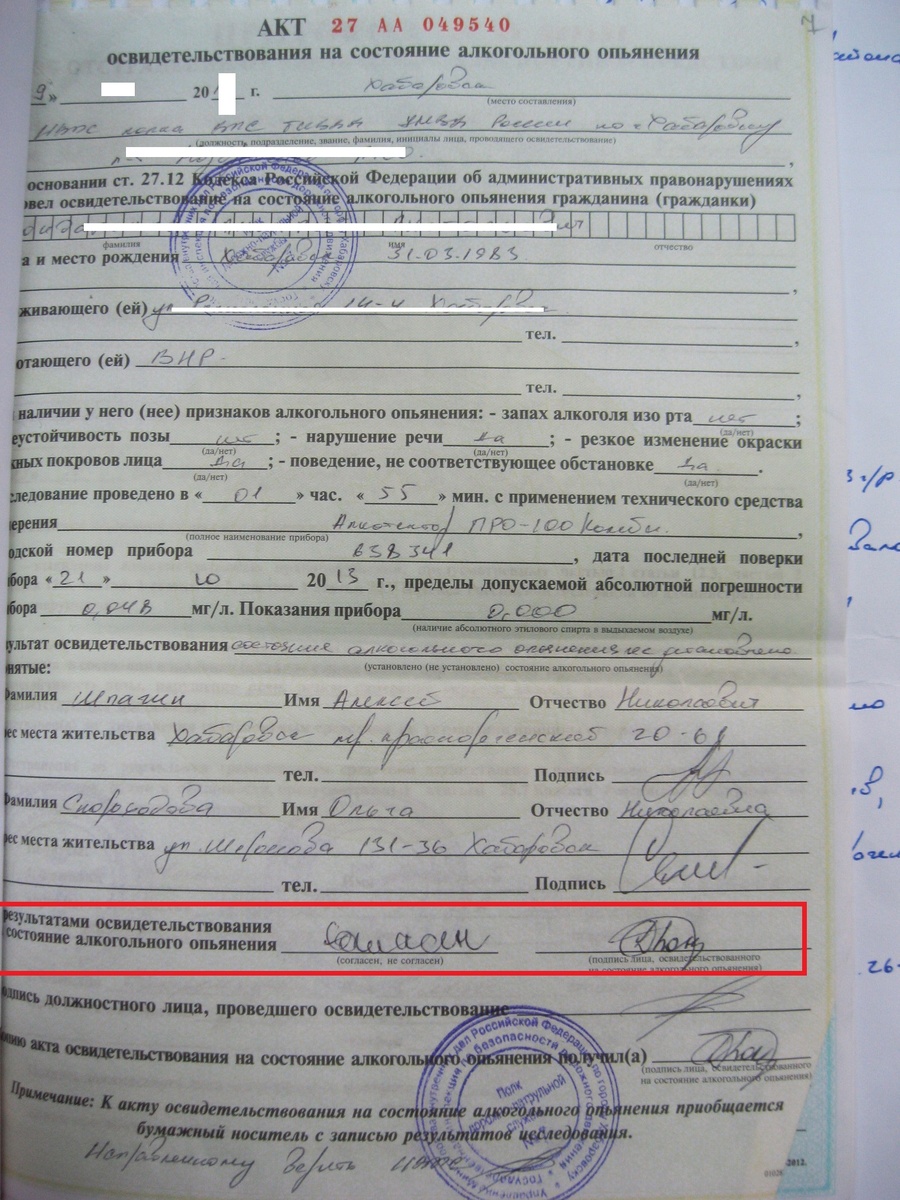 7
АКТ 27 АА 049540
освидетельствования на состояние алкогольного опьянения
9 » 20 г. Хабаровск
(место составления)
ИДПС полка ДПС ГИБДД УМВД России по г. Хабаровску
(должность, подразделение, звание, фамилия, инициалы лица, проводящего освидетельствование)
основании ст. 27.12 Кодекса Российской Федерации об административных правонарушениях
овел освидетельствование на состояние алкогольного опьянения гражданина (гражданки)
фамилия имя отчество
а и место рождения Хабаровск 31.03.1983
,
живающего (ей) ул 14-4 Хабаровск
тел. ,
отающего (ей) ВНР-
тел. ,
наличии у него (нее) признаков алкогольного опьянения: - запах алкоголя изо рта нет ;
(да/нет)
еустойчивость позы нет ; - нарушение речи да ; - резкое изменение окраски
(да/нет) (да/нет)
жных покровов лица да ; - поведение, не соответствующее обстановке да .
(да/нет) (да/нет)
следование проведено в « 01 » час. « 55 » мин. с применением технического средства
ерения Алкотектор ПРО-100 Комби. ,
(полное наименование прибора)
одской номер прибора 638341 , дата последней поверки
бора « 21 » 10 20 13 г., пределы допускаемой абсолютной погрешности
бора 0,048 мг/л. Показания прибора 0,000 мг/л.
(наличие абсолютного этилового спирта в выдыхаемом воздухе)
ультат освидетельствования состояние алкогольного опьянения не установлено
(установлено (не установлено) состояние алкогольного опьянения)
нятые:
Фамилия Шпагин Имя Алексей Отчество Николаевич
ес места жительства Хабаровск 20-61
тел. Подпись
Фамилия Скороходова Имя Ольга Отчество Николаевна
ес места жительства ул. Шеронова 131-36 Хабаровск
тел. Подпись
результатами освидетельствования
состояние алкогольного опьянения согласен
(согласен, не согласен) (подпись лица, освидетельствованного
на состояние алкогольного опьянения)
одпись должностного лица, проведшего освидетельствование
опию акта освидетельствования на состояние алкогольного опьянения получил(а)
(подпись лица, освидетельствованного
на состояние алкогольного опьянения)
Примечание: К акту освидетельствования на состояние алкогольного опьянения приобщается
бумажный носитель с записью результатов исследования.
2012.